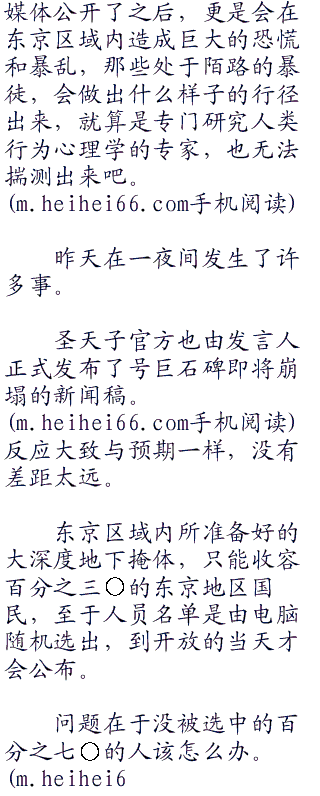 媒体公开了之后，更是会在
东京区域内造成巨大的恐慌
和暴乱，那些处于陌路的暴
徒，会做出什么样子的行径
出来，就算是专门研究人类
行为心理学的专家，也无法
揣测出来吧。
(m.heihei66.com手机阅读)
昨天在一夜间发生了许
多事。
圣天子官方也由发言人
正式发布了号巨石碑即将崩
塌的新闻稿。
(m.heihei66.com手机阅读)
反应大致与预期一样，没有
差距太远。
东京区域内所准备好的
大深度地下掩体，只能收容
百分之三〇的东京地区国
民，至于人员名单是由电脑
随机选出，到开放的当天才
会公布。
问题在于没被选中的百
分之七〇的人该怎么办。
(m.heihei6